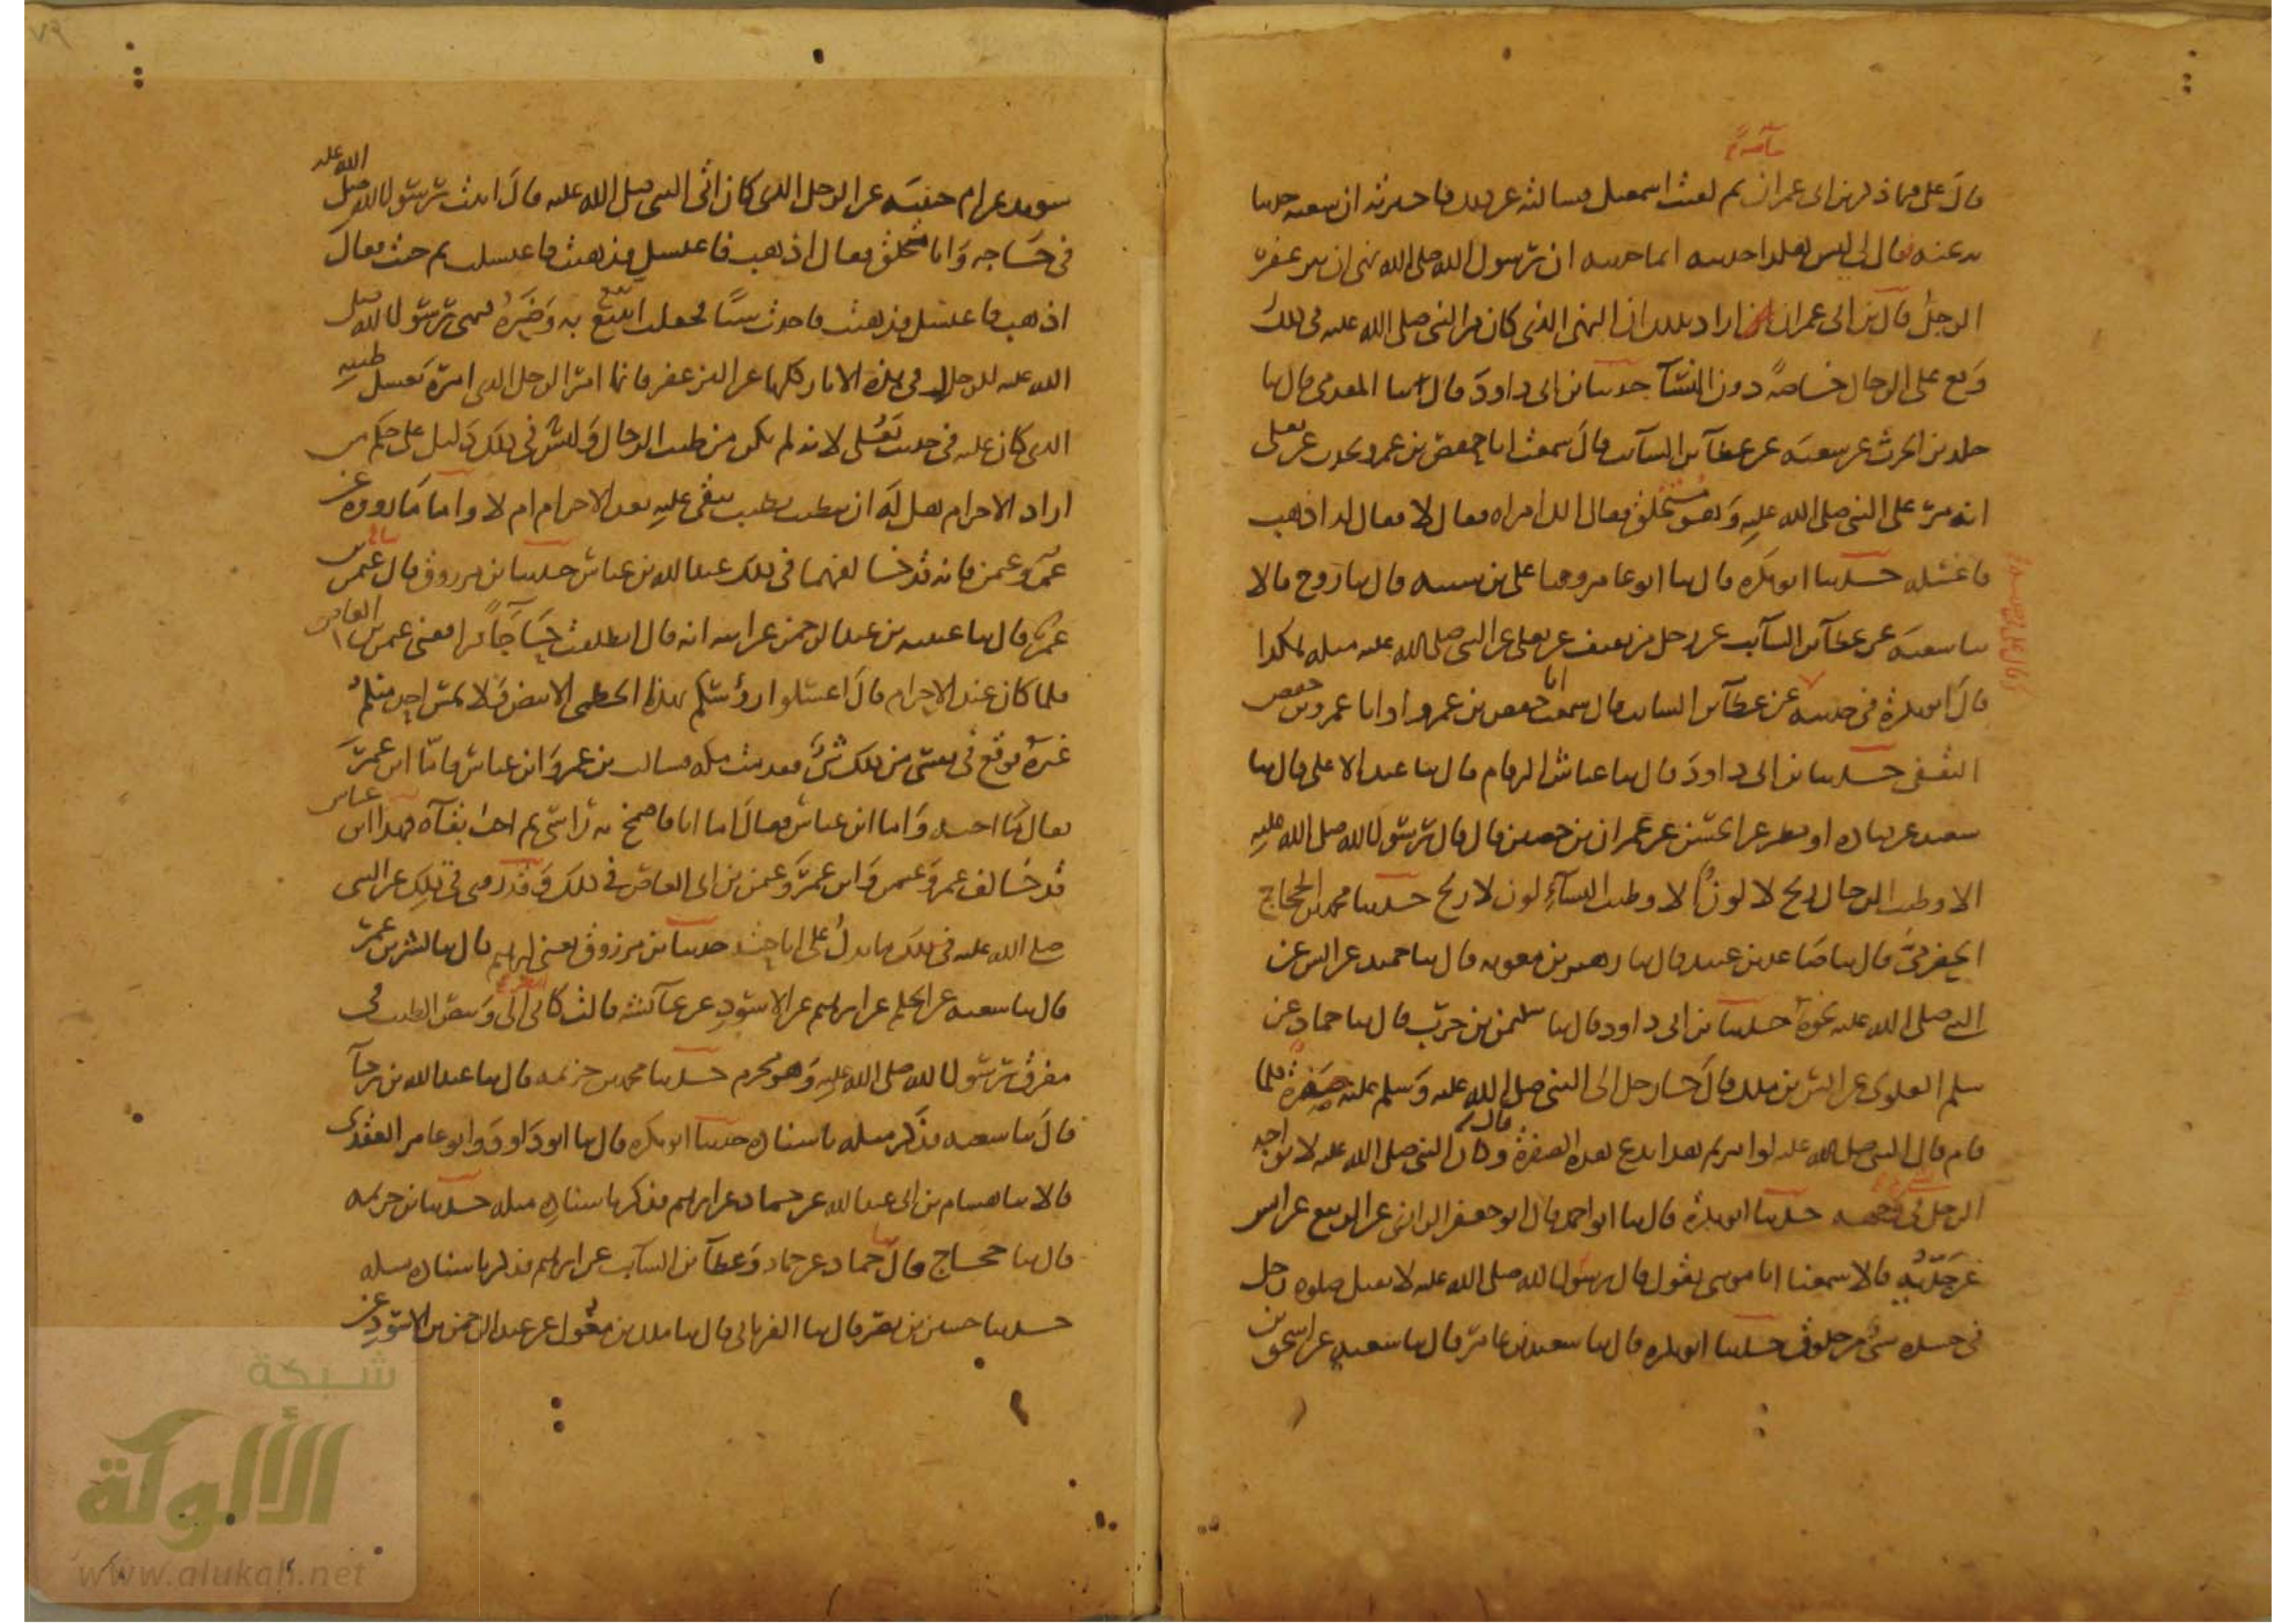 قال على فيما ذكر بن ابى عمران ثم لقيت اسمعيل فسالته عن ذلك فاخبرته ان شعبه حدثنا
به عنه فقال لى ليس هكذا حدثته انما حدثته ان رسول الله صلى الله نهى ان يتزعفر
الرجل قال بن ابى عمران اراد بذلك ان النهى الذى كان من النبى صلى الله عليه فى ذلك
وقع على الرجال خاصةً دون النسآ حدثنا بن ابى داود قال ثنا المقدمى قال ثنا
خلد بن الحرث عن شعبة عن عطآ بن السآئب قال سمعت ابا حفص بن عمرو يحدث عن يعلى
انه مر على النبى صلى الله عليه وهو متخلق فقال الك امراه فقال لا فقال له اذهب
فاغسله حدثنا ابو بكره قال ثنا ابو عامر وحدثنا على بن شيبه قال ثنا روح قالا
ثنا شعبة عن عطآ بن السآئب عن رجل من ثقيف عن يعلى عن النبى صلى الله عليه مثله هكذا
قال ابو بكرة فى حديثه عن عطآ بن السائب قال سمعت ابا حفص بن عمرو او ابا عمرو بن حفص
الثقفى حدثنا بن ابى داود قال ثنا عياش الرقام قال ثنا عبد الاعلى قال ثنا
سعيد عن قتاده او مطر عن الحسن عن عمران بن حصين قال قال رسول الله صلى الله عليه
الا وطيب الرجال ريح لا لون الا وطيب النسآء لون لا ريح حدثنا محمد بن الحجاج
الحضرمى قال ثنا صاعد بن عبيد قال ثنا زهير بن معويه قال ثنا حميد عن انس عن
النبى صلى الله عليه نحوه حدثنا بن ابى داود قال ثنا سليمن بن حرب قال ثنا حماد عن
سلم العلوى عن انس بن ملك قال جا رجل الى النبى صلى الله عليه وسلم عليه صفرة فلما
قام قال النبى صلى الله عليه لو امرتم هذا يدع هذه الصفرة قال وكان النبى صلى الله عليه لا يواجه
الرجل فى وجهه حدثنا ابو بكرة قال ثنا ابو احمد قال ابو جعفر الرازى عن الربيع بن انس
عن جديه قالا سمعنا ابا موسى يقول قال رسول الله صلى الله عليه لا يقبل صلوه رجل
فى جسده شىء من خلوق حدثنا ابو بكره قال ثنا سعيد بن عامر قال ثنا سعيد عن اسحق بن
سويد عن ام حبيبه عن الرجل الذى كان اتى النبى صلى الله عليه قال اتيت رسول الله صلى الله عليه
فى حاجه وانا متخلق فقال اذهب فاغتسل فذهبت فاغتسلت ثم جئت فقال
اذهب فاغتسل فذهبت فاخذت شيئا فجعلت اتتبع به وضره فنهى رسول الله صلى
الله عليه للرجل فى هذه الاثار كلها عن التزعفر فانما امر الرجل الذى امره بغسل طيبه
الذى كان عليه فى حديث يعلى لانه لم يكن من طيب الرجال وليس فى ذلك دليل على حكم من
اراد الاحرام هل له ان يتطيب بطيب يبقى عليه بعد الاحرام ام لا واما ما روى عن
عمر وعثمن فانه قد خالفهما فى ذلك عبد الله بن عباس حدثنا بن مرزوق قال ثنا عثمن بن
عمر قال ثنا عيينه بن عبد الرحمن عن ابيه انه قال انطلقت حاجا فرافقنى عثمن بن ابى العاص
فلما كان عند الاحرام قال اغسلوا رؤسكم بهذا الخطمى الابيض ولا يمس احد منكم
غيره فوقع فى نفسى من ذلك شىء فقدمت مكه فسالت بن عمر وابن عباس فاما ابن عمر
فقال ما احبه واما ابن عباس فقال اما انا فاضمخ به راسى ثم احب بقآه فهذا ابن عباس
قد خالف عمر وعثمن وابن عمر وعثمن بن ابى العاص فى ذلك وقد روى فى ذلك عن النبى
صلى الله عليه فى ذلك ما يدل على اباحته حدثنا بن مرزوق يعنى ابرهيم قال ثنا بشر بن عمر
قال ثنا شعبه عن الحكم عن ابرهيم عن الاسود عن عآئشة قالت كانى انظر الى وبيص الطيب فى
مفرق رسول الله صلى الله عليه وهو محرم حدثنا محمد بن خزيمه قال ثنا عبد الله بن رجآ
قال ثنا شعبه فذكر مثله باسناده حدثنا ابو بكره قال ثنا ابو داود وابو عامر العقدى
قالا ثنا هشام بن ابى عبد الله عن حماد عن ابرهيم فذكر باسناده مثله حدثنا بن خزيمه
قال ثنا حجاج قال ثنا حماد عن حماد وعطآ بن السآئب عن ابرهيم فذكر باسناده مثله
حدثنا حسين بن نصر قال ثنا الفريابى قال ثنا ملك بن مغول عن عبد الرحمن بن الاسود عن
شبكة
الألوكة
www.alukah.net